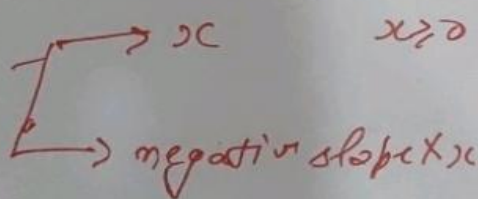 x x≥0
negative slope X x